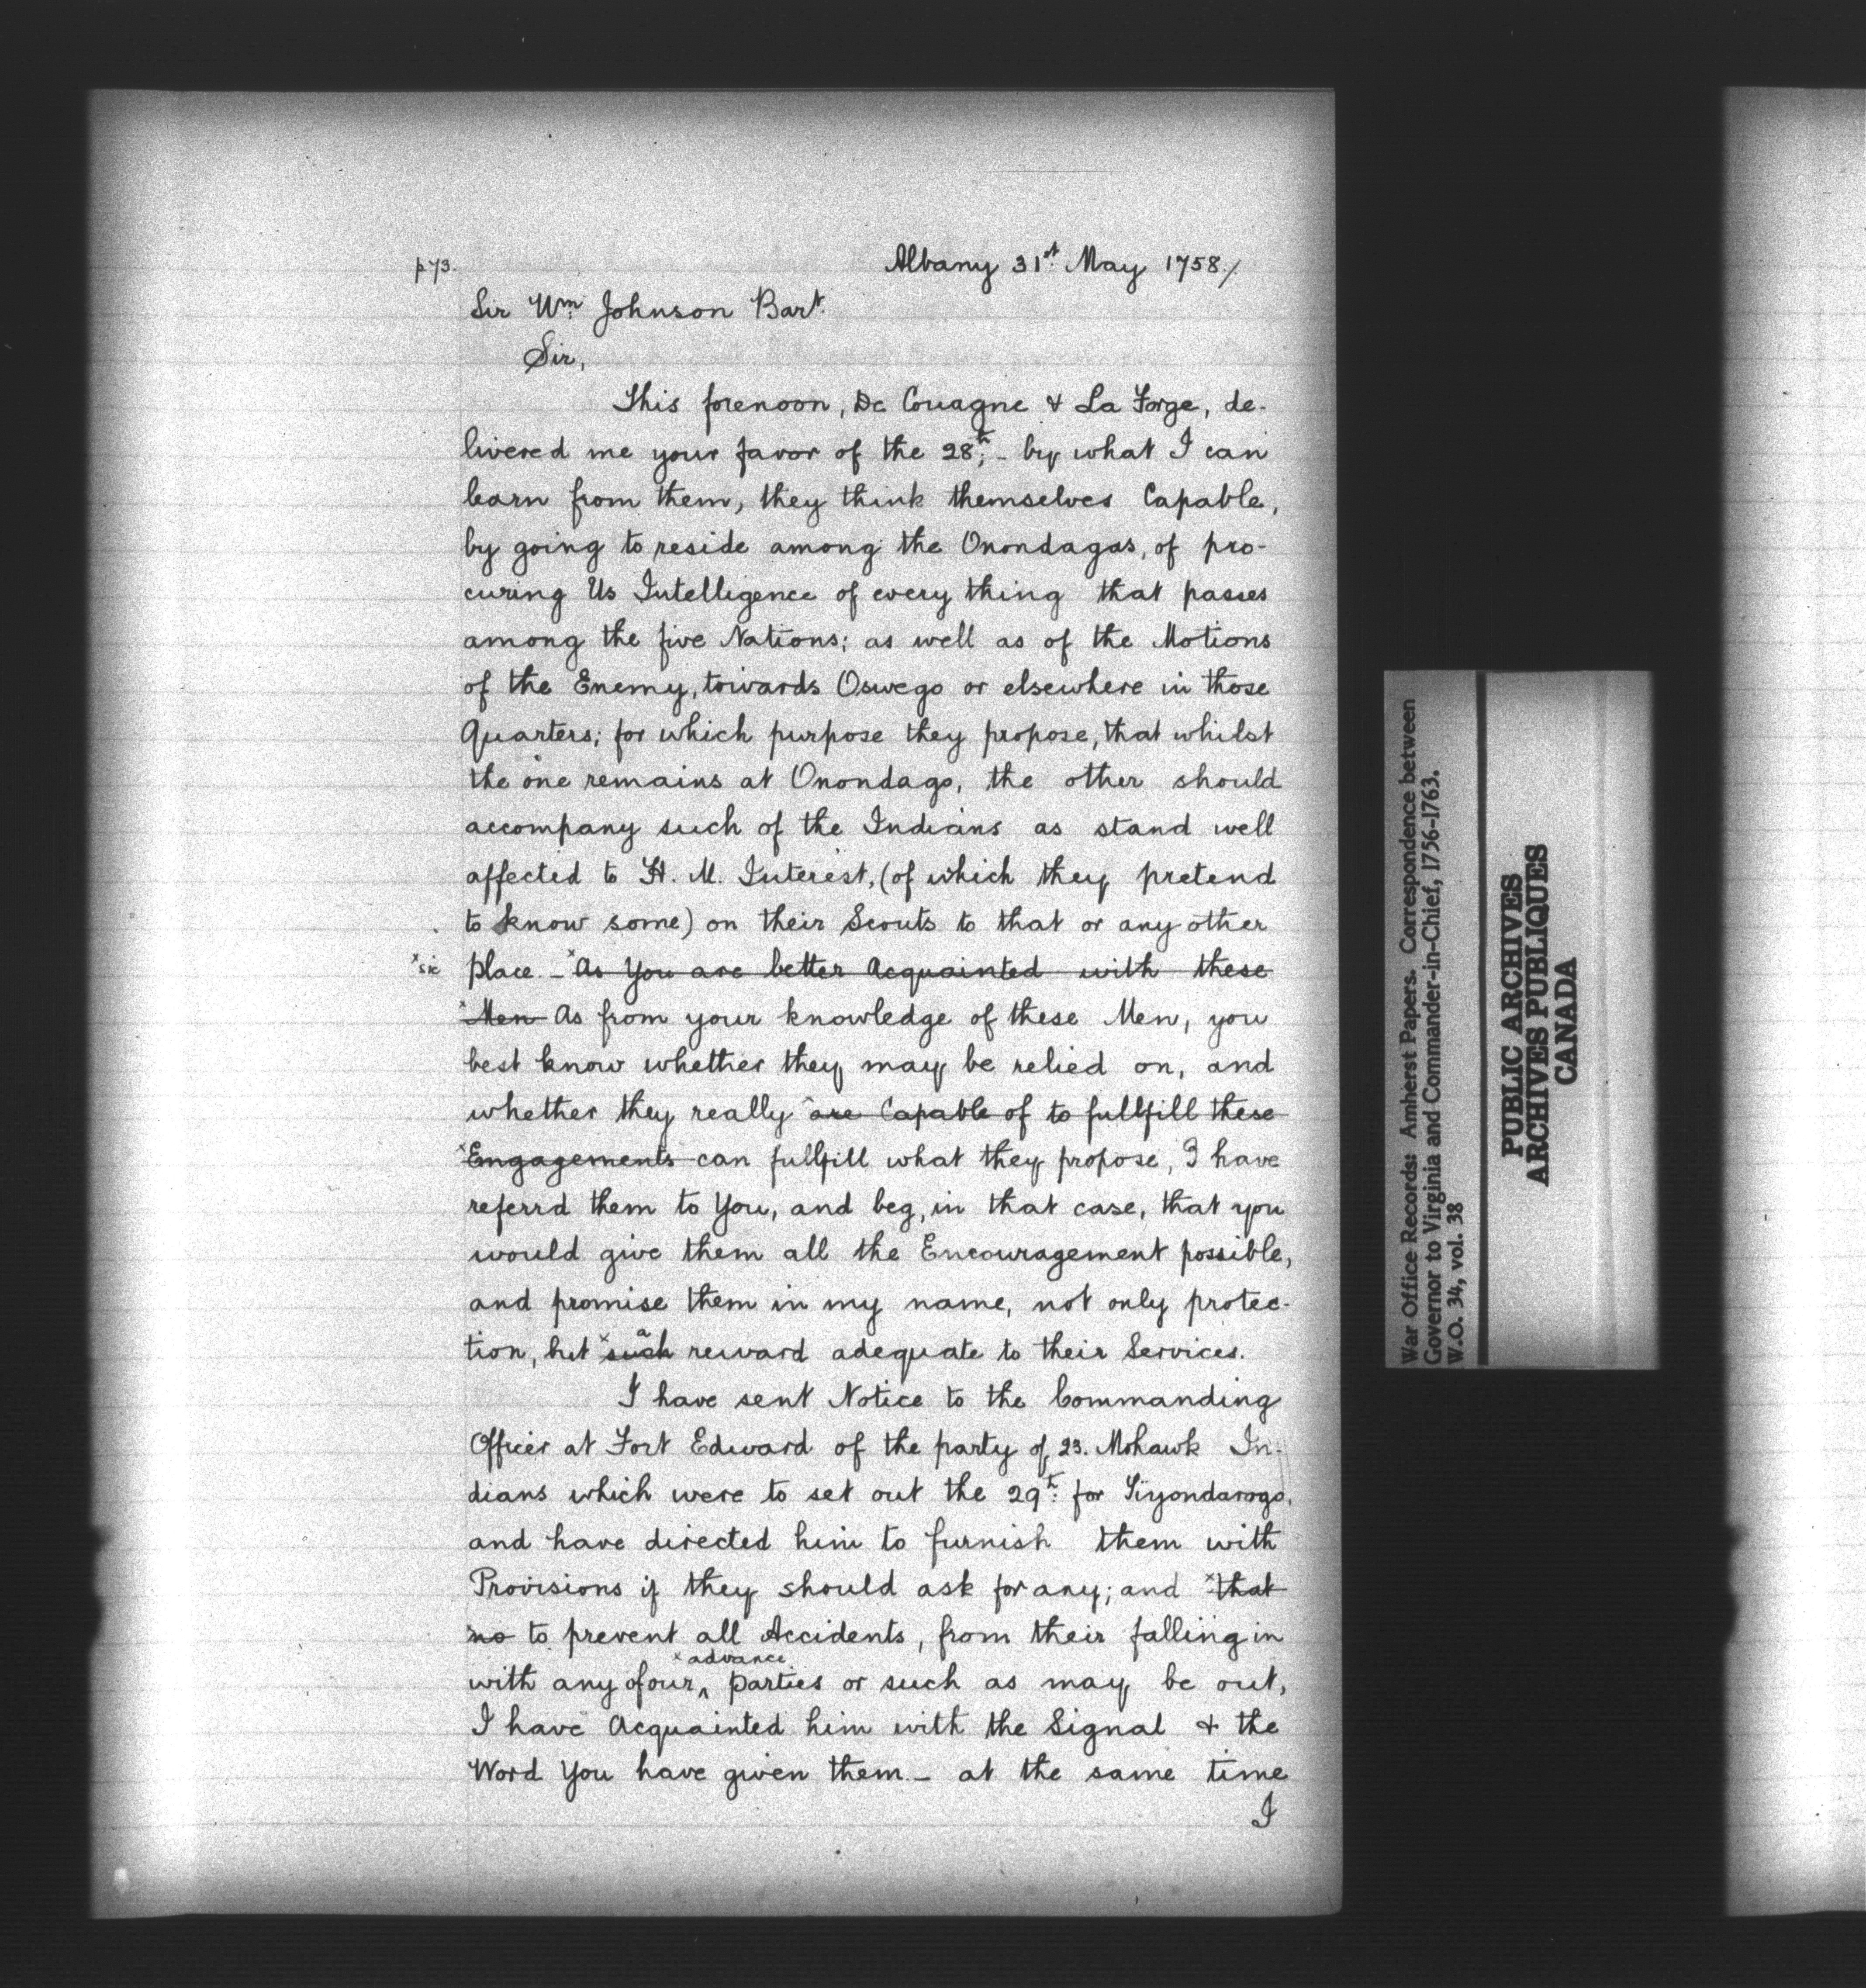 p 73.
Albany 31st May 1758./
Sir Wm Johnson Bart.
Sir,
This forenoon, De Couagne & La Forge, de-
livered me your favor of the 28th; - by what I can
learn from them, they think themselves Capable,
by going to reside among the Onondagas, of pro-
curing Us Intelligence of every thing that passes
among the five Nations; as well as of the Motions
of the Enemy, towards Oswego or elsewhere in those
Quarters; for which purpose they propose, that whilst
the one remains at Onondago, the other should
accompany such of the Indians as stand well
affected to H. M. Interest, (of which they pretend
to know some) on their Scouts to that or any other
x sic place - x As You are better Acquainted with these
x Men As from your knowledge of these Men, you
best know whether they may be relied on, and
whether they really x are Capable of to fullfill these
x Engagements can fullfill what they propose, I have
referrd them to You, and beg, in that case, that you
would give them all the Encouragement possible,
and promise them in my name, not only protec-
tion, but x such a reward adequate to their Services.
I have sent Notice to the Commanding
Officer at Fort Edward of the party of 23. Mohawk In-
dians which were to set out the 29th: for Tiyondarogo,
and have directed him to furnish them with
Provisions if they should ask for any; and x that
no to prevent all Accidents, from their falling in
x advance
with any of our ‸ parties or such as may be out,
I have Acquainted him with the Signal & the
Word You have given them - at the same time
I
War Office Records: Amherst Papers. Correspondence between
Governor to Virginia and Commander-in-Chief, 1756-1763.
W.O. 34, vol. 38
PUBLIC ARCHIVES
ARCHIVES PUBLIQUES
CANADA